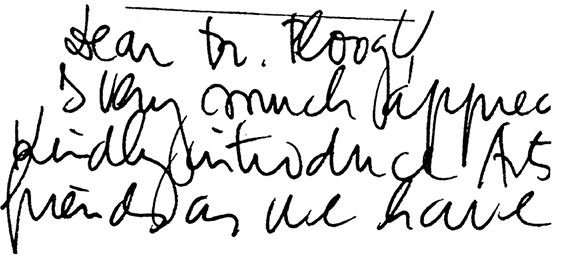 Dear Dr. Ploog!
I very much apprec
kindly introduce Arts
friends as we have